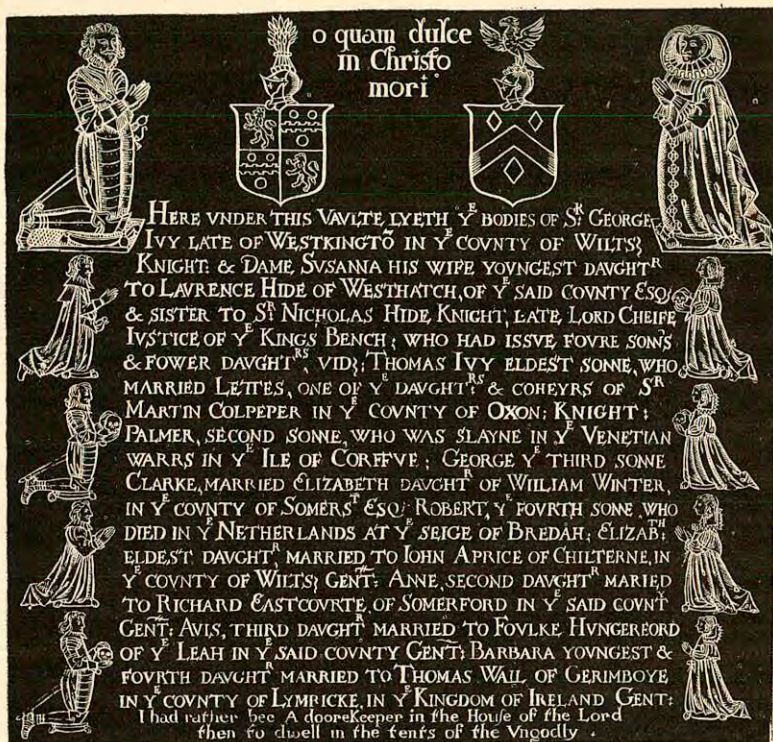 o quam dulce
in Christo
mori
HERE VNDER THIS VAVLTE LYETH Yᴱ BODIES OF Sᴿ: GEORGE
IVY LATE OF WESTKINGTÕ IN Yᴱ COVNTY OF WILTS;
KNIGHT: & DAME SVSANNA HIS WIFE YOVNGEST DAVGHTᴿ
TO LAVRENCE HIDE OF WESTHATCH, OF Yᴱ SAID COVNTY ESQ;
& SISTER TO Sᴿ: NICHOLAS HIDE KNIGHT, LATE LORD CHEIFE
IVSTICE OF Yᴱ KINGS BENCH; WHO HAD ISSVE FOVRE SONNS
& FOWER DAVGHTᴿˢ, VID; THOMAS IVY ELDEST SONNE, WHO
MARRIED LETTES, ONE OF Yᴱ DAVGHTᴿˢ: & COHEYRS OF Sᴿ
MARTIN COLPEPER IN Yᴱ COVNTY OF OXON; KNIGHT:
PALMER, SECOND SONNE, WHO WAS SLAYNE IN Yᴱ VENETIAN
WARRS IN Yᴱ ILE OF CORFFVE; GEORGE Yᴱ THIRD SONNE
CLARKE, MARRIED ELIZABETH DAVGHTᴿ OF WILLIAM WINTER,
IN Yᴱ COVNTY OF SOMERSᵀ ESQ; ROBERT, Yᴱ FOVRTH SONE, WHO
DIED IN Yᴱ NETHERLANDS AT Yᴱ SEIGE OF BREDAH; ELIZABᵀᴴ:
ELDEST DAVGHTᴿ, MARRIED TO IOHN APRICE OF CHILTERNE, IN
Yᴱ COVNTY OF WILTS; GENT: ANNE, SECOND DAVGHTᴿ MARIED
TO RICHARD EASTCOVRTE, OF SOMERFORD IN Yᴱ SAID COVNTʸ
GENT: AVIS, THIRD DAVGHTᴿ MARRIED TO FOVLKE HVNGERFORD
OF Yᴱ LEAH IN Yᴱ SAID COVNTY GENT; BARBARA YOVNGEST &
FOVRTH DAVGHTᴿ MARRIED TO THOMAS WALL OF GERIMBOYE
IN Yᴱ COVNTY OF LYMRICKE, IN Yᴱ KINGDOM OF IRELAND GENT:
I had rather bee A dooreKeeper in the House of the Lord
then to dwell in the tents of the Vngodly .